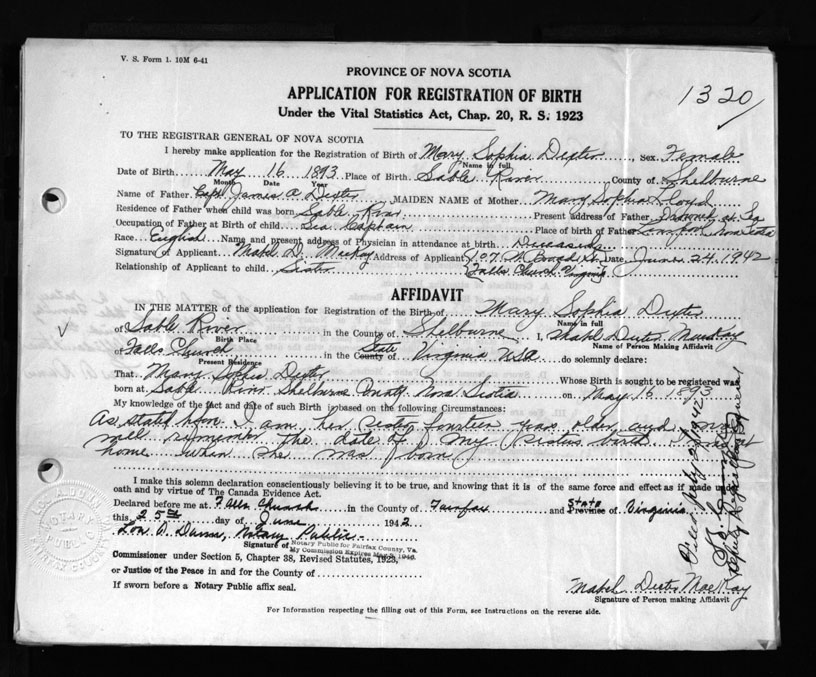 V. S. Form 1. 10M 6-41
1320
PROVINCE OF NOVA SCOTIA
APPLICATION FOR REGISTRATION OF BIRTH
Under the Vital Statistics Act, Chap. 20, R. S. 1923
TO THE REGISTRAR GENERAL OF NOVA SCOTIA
I hereby make application for the Registration of Birth of Mary Sophia Dexter, Sex Female
Name in full
Date of Birth May 16 1893 Place of Birth Sable River County of Shelburne
Month Date Year
Name of Father Capt James A Dexter MAIDEN NAME of Mother Mary Sophia Lloyd
Residence of Father when child was born Sable River Present address of Father Drowned at Sea
Occupation of Father at Birth of child Sea Captain Place of birth of Father Nova Scotia
Race English Name and present address of Physician in attendance at birth Deceased
Signature of Applicant Mabel D. MacKay Address of Applicant 107 Broad St. Date June 24, 1942
Relationship of Applicant to child Sister Falls Church Virginia
AFFIDAVIT
IN THE MATTER of the application for Registration of the Birth of Mary Sophia Dexter
Name in full
of Sable River in the County of Shelburne I, Mabel Dexter MacKay
Birth Place Name of Person Making Affidavit
of Falls Church in the County of State Virginia USA do solemnly declare:
Present Residence
That Mary Sophia Dexter Whose Birth is sought to be registered was
born at Sable River Shelburne County Nova Scotia on May 16 1893
My knowledge of the fact and date of such Birth is based on the following Circumstances:
As stated above I am her sister fourteen years older, and
well remember the date of my sisters birth. I was at
home when she was born
I make this solemn declaration conscientiously believing it to be true, and knowing that it is of the same force and effect as if made under
oath and by virtue of The Canada Evidence Act.
Declared before me at Falls Church in the County of Fairfax and State Province of Virginia
this 25th day of June 1942
Notary Public
Signature of Notary Public for Fairfax County, Va.
My Commission Expires
Commissioner under Section 5, Chapter 38, Revised Statutes, 1923,
or Justice of the Peace in and for the County of
If sworn before a Notary Public affix seal.
Mabel Dexter MacKay
Signature of Person making Affidavit
For Information respecting the filling out of this Form, see Instructions on the reverse side.
NOTARY
PUBLIC